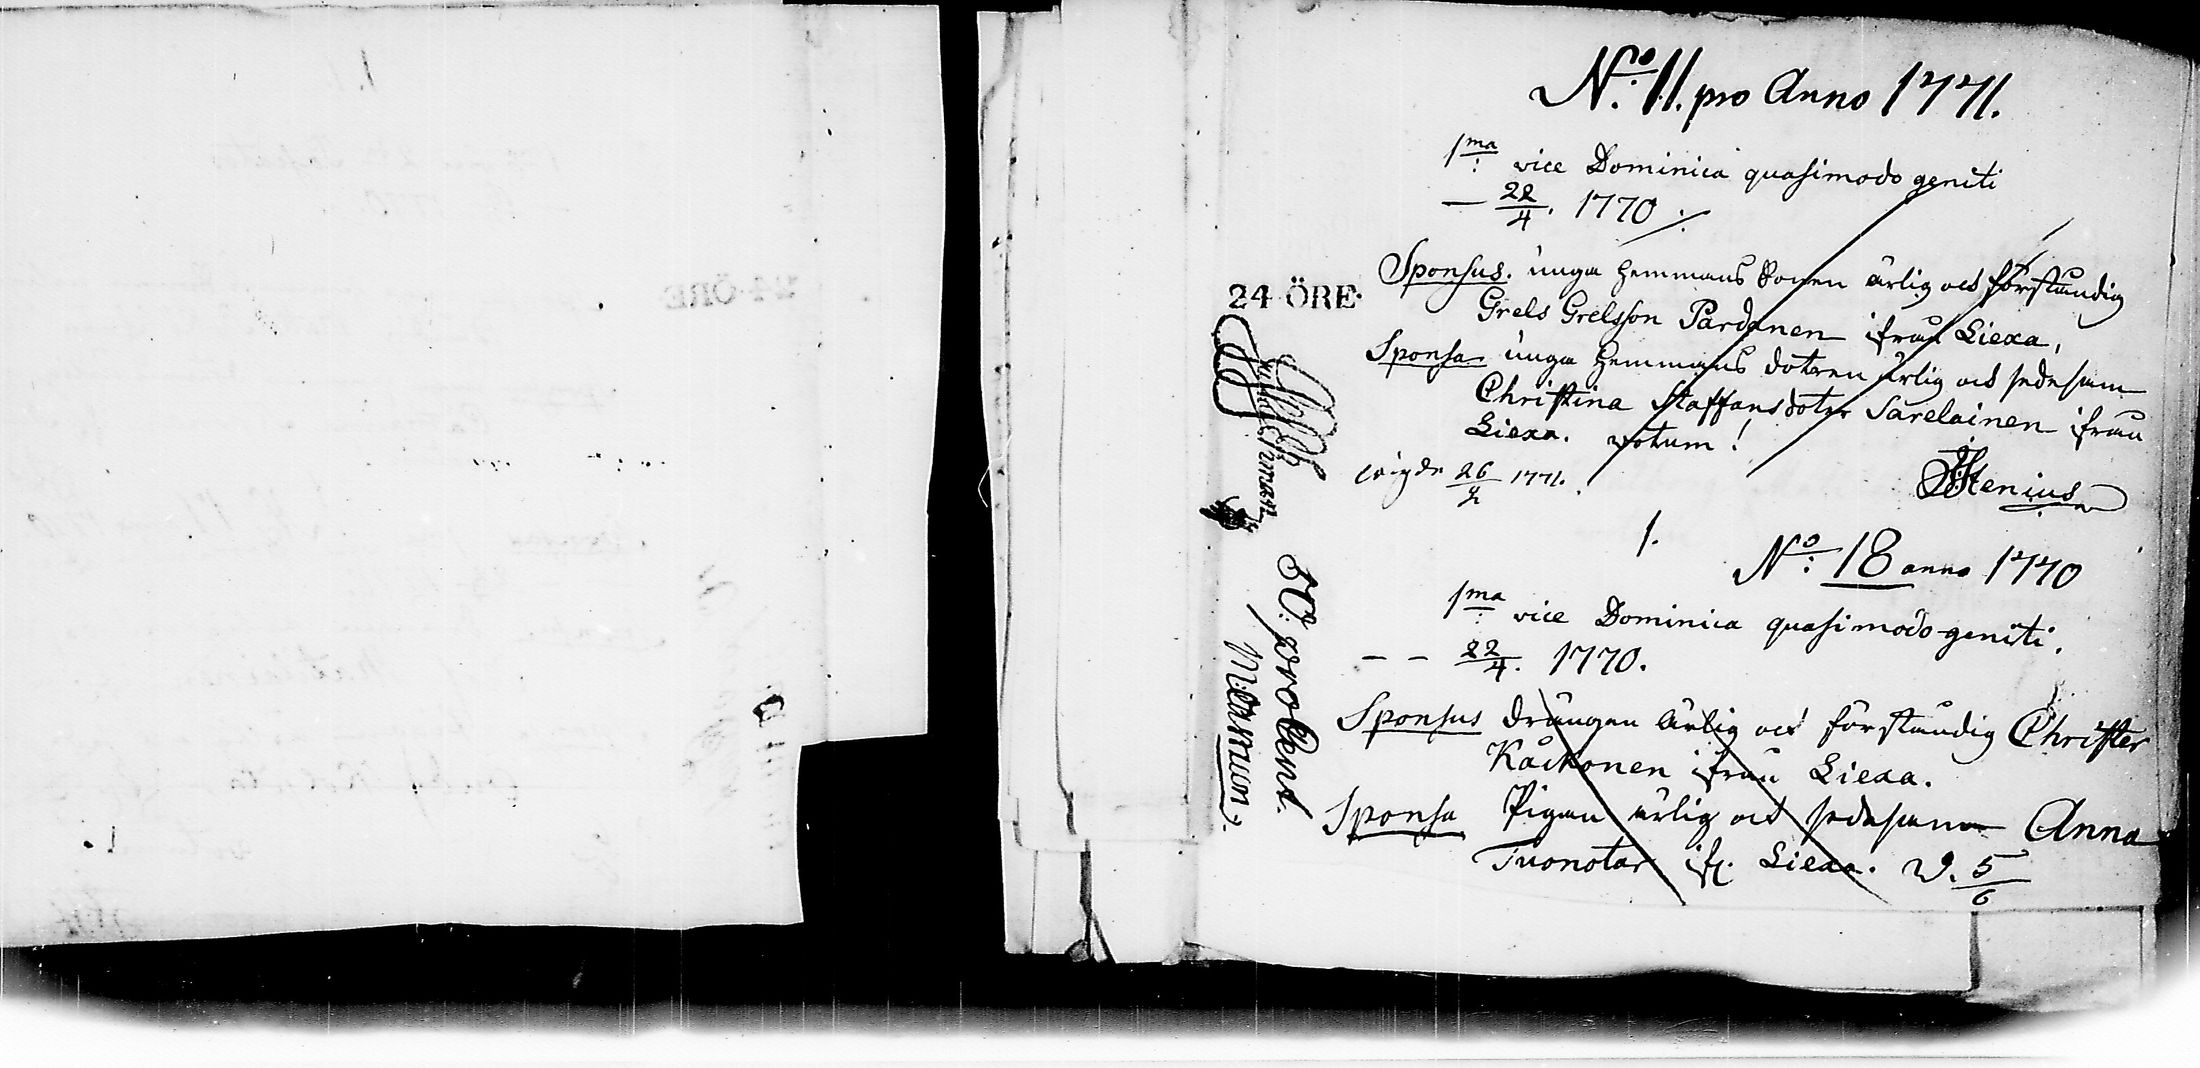 No: 11. pro Anno 1771.
1ma vice Dominica quasimodo geniti
— 22/4. 1770 ./.
Sponsus. unga hemmans Sonen ärlig och förståndig
Grels Grelsson Pardanen ifrån Liexa,
Sponsa unga hemmans dotren ärlig och sedesam
Christina Staffansdoter Sarelainen ifrån
Liexa. votum!
wigde 26/2 1771.
JStenius
24 ÖRE
1.
No: 18 anno 1770
1ma vice Dominica quasimodo-geniti.
— — 22/4. 1770.
Sponsus drängen ärlig och förståndig Christer
Kaikonen ifrån Liexa.
Sponsa Pigan ärlig och sedesam Anna
Tuonotar ifr. Liexa. V. 5/6